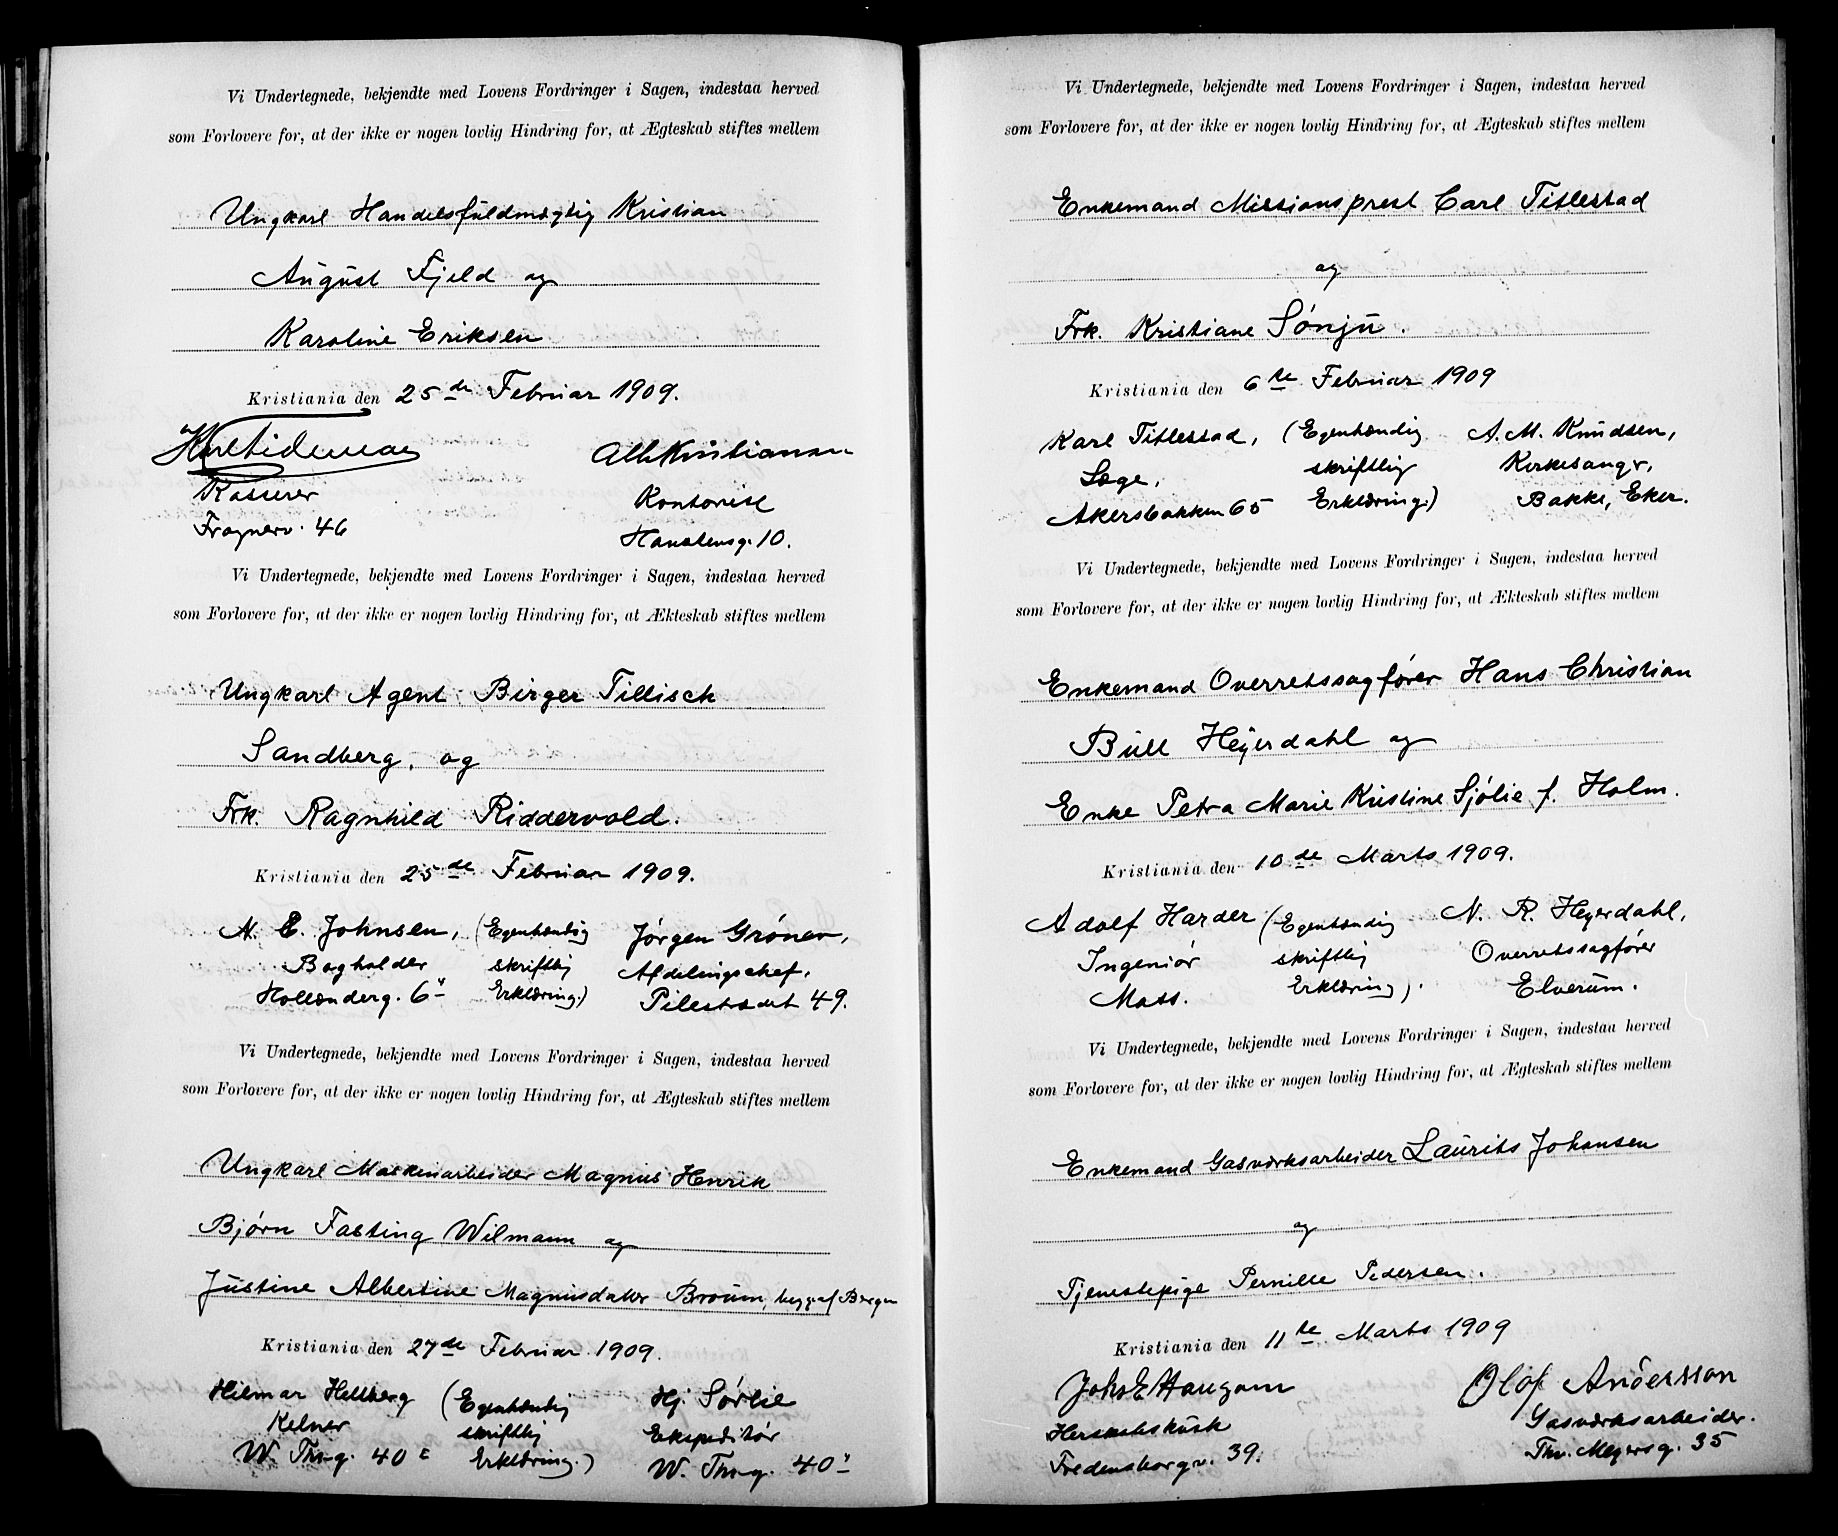 Vi Undertegnede, bekjendte med Lovens Fordringer i Sagen, indestaa herved
som Forlovere for, at der ikke er nogen lovlig Hindring for, at Ægteskab stiftes mellem
Ungkarl Handelsfuldmægtig Kristian
August Fjeld og
Karoline Eriksen
Kristiania den 25de Februar 1909.
Kasserer
Kontorist
Frognerv. 46
10.
Vi Undertegnede, bekjendte med Lovens Fordringer i Sagen, indestaa herved
som Forlovere for, at der ikke er nogen lovlig Hindring for, at Ækteskab stiftes mellem
Ungkarl Agent Birger Tillisch
Sandberg, og
Frk. Ragnhild Riddervold.
Kristiania den 25de Februar 1909.
N. E. Johnsen, (Egenhændig Jørgen Grøner,
Bogholder skriftlig Afdelingschef,
Hollænderg. 6II Erklæring.) Pilestrædet 49.
Vi Undertegnede, bekjendte med Lovens Fordringer i Sagen, indestaa herved
som Forlovere for, at der ikke er nogen lovlig Hindring for, at Ægteskab stiftes mellem
Ungkarl Maskinarbeider Magnus Henrik
Bjørn Fasting Wilmann og
Justine Albertine Magnusdatter Broum, begge af Bergen
Kristiania den 27de Februar 1909.
Hilmar Hellberg (Egenhændig Hj. Sørlie
Kelner skriftlig Ekspeditør
W. Thr.g. 40 Erklæring.) W. Thr.g. 40
Vi Undertegnede, bekjendte med Lovens Fordringer i Sagen, indestaa herved
som Forlovere for, at der ikke er nogen lovlig Hindring for, at Ægteskab stiftes mellem
Enkemand Missionsprest Carl Titlestad
og
Frk. Kristiane Sønju.
Kristiania den 6te Februar 1909
Karl Titlestad, (Egenhændig A. M. Knudsen,
Læge, skriftlig Kirkesangr,
Akersbakken 65 Erklæring.) Bakke, Eker.
Vi Undertegnede, bekjendte med Lovens Fordringer i Sagen, indestaa herved
som Forlovere for, at der ikke er nogen lovlig Hindring for, at Ækteskab stiftes mellem
Enkemand Overretssagfører Hans Christian
Bull Heyerdahl og
Enke Petra Marie Kristine Sjølie f. Holm.
Kristiania den 10de Marts 1909.
Adolf Harder (Egenhændig N. R. Heyerdahl,
Ingeniør skriftlig Overretssagfører
Moss. Erklæring). Elverum.
Vi Undertegnede, bekjendte med Lovens Fordringer i Sagen, indestaa herved
som Forlovere for, at der ikke er nogen lovlig Hindring for, at Ægteskab stiftes mellem
Enkemand Gasværksarbeider Laurits Johansen
og
Tjenestepige Pernille Pedersen.
Kristiania den 11te Marts 1909
Johs E Haugom Olof Andersson
Herskabskusk Gasværksarbeider.
Fredensborgv. 39. Thv. Meyersg. 35